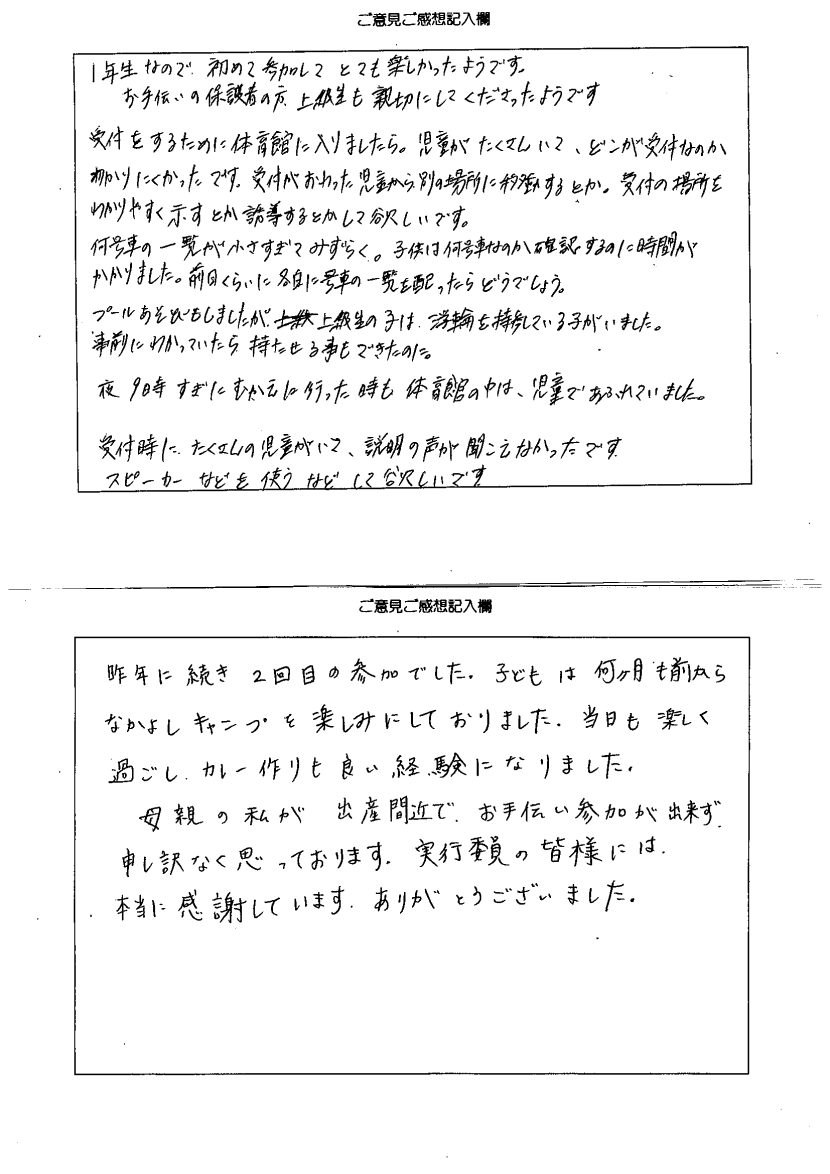 ご意見ご感想記入欄
1年生なので、初めて参加して とても楽しかったようです。
お手伝いの保護者の方、上級生も 親切にしてくださったようです
受付をするために体育館に入りましたら。児童が たくさんいて、どこが受付なのか
わかりにくかったです。受付がおわった児童から別の場所に移動するとか。受付の場所を
わかりやすく示すとか誘導するとかして欲しいです。
何号車の一覧が小さすぎてみずらく。子供は何号車なのか確認するのに時間が
かかりました。前日くらいに各自に号車の一覧を配ったらどうでしょう。
プールあそびもしましたが、上級生の子は、浮輪を持参している子がいました。
事前にわかっていたら 持たせる事もできたのに。
夜 9時すぎにむかえに行った時も 体育館の中は、児童であふれていました。
受付時に、たくさんの児童がいて、説明の声が聞こえなかったです
スピーカーなどを使うなどして欲しいです
ご意見ご感想記入欄
昨年に続き 2回目の参加でした。子どもは 何ヶ月も前から
なかよしキャンプを楽しみにしておりました。当日も楽しく
過ごし、カレー作りも良い経験になりました。
母親の私が 出産間近で、お手伝い参加が出来ず、
申し訳なく思っております。実行委員の皆様には、
本当に感謝しています。ありがとうございました。